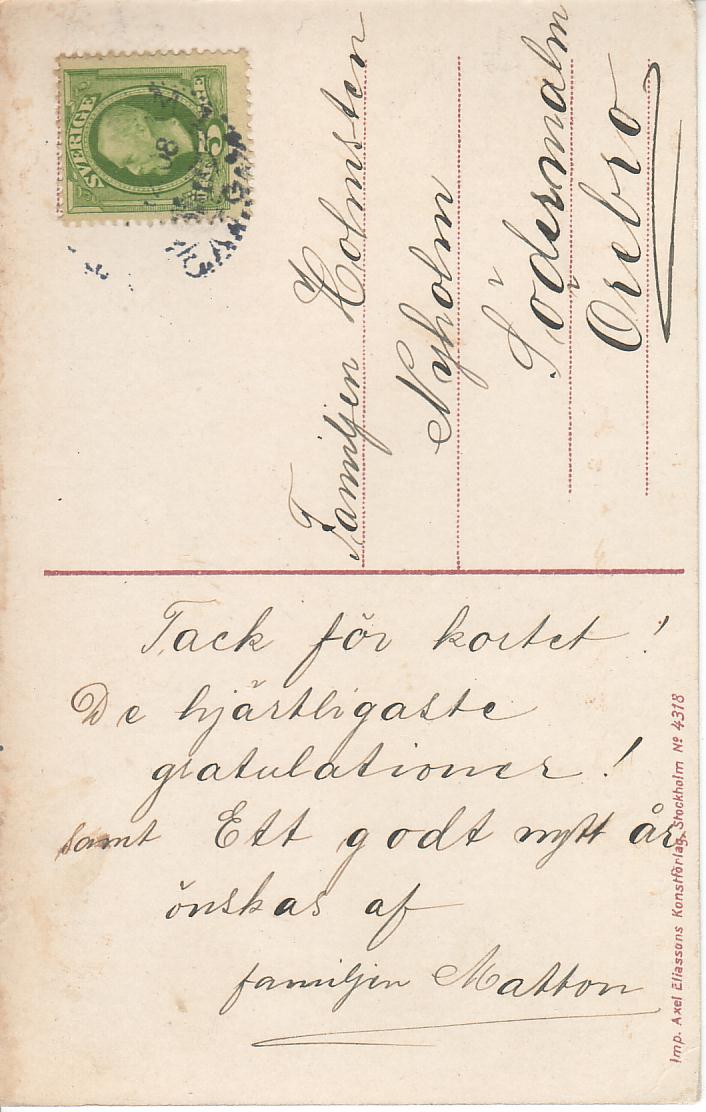 SVERIGE
5
08
Familjen Holmsten
Nyholm
Södermalm
Örebro
Tack för kortet!
De hjärtligaste
gratulationer!
samt Ett godt nytt år
önskas af
familjen Matton
Imp. Axel Eliassons Konstförlag, Stockholm Nº 4318